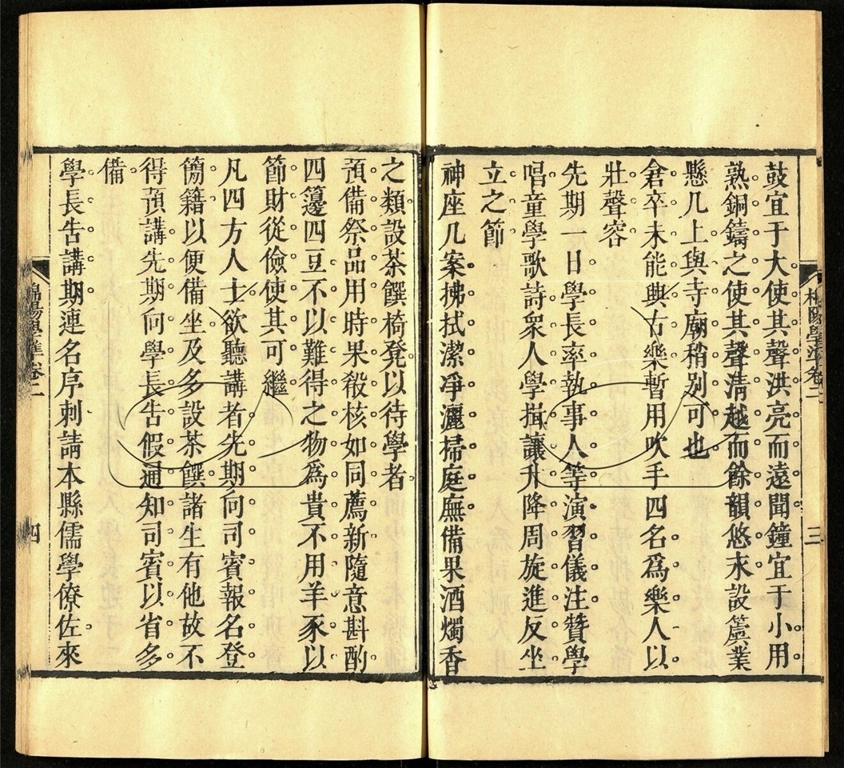 鼓宜于大使其聲洪亮而遠聞鐘宜于小用
熟銅鑄之使其聲清越而餘韻悠末設簴業
懸几上與寺廟稍別可也
倉卒未能興古樂暫用吹手四名爲樂人以
壯聲容
先期一日學長率執事人等演習儀注贊學
唱童學歌詩衆人學揖讓升降周旋進反坐
立之節
神座几案拂拭潔凈灑掃庭廡備果酒燭香
楊陽學準卷二
三
之類設茶饌椅凳以待學者
預備祭品用時果殽核如同薦新隨意斟酌
四籩四豆不以難得之物爲貴不用羊豕以
節財從儉使其可繼
凡四方人士欲聽講者先期向司賓報名登
簡籍以便備坐及多設茶饌諸生有他故不
得預講先期向學長告假通知司賓以省多
備
學長告講期連名序刺請本縣儒學僚佐來
陽學準卷二
四